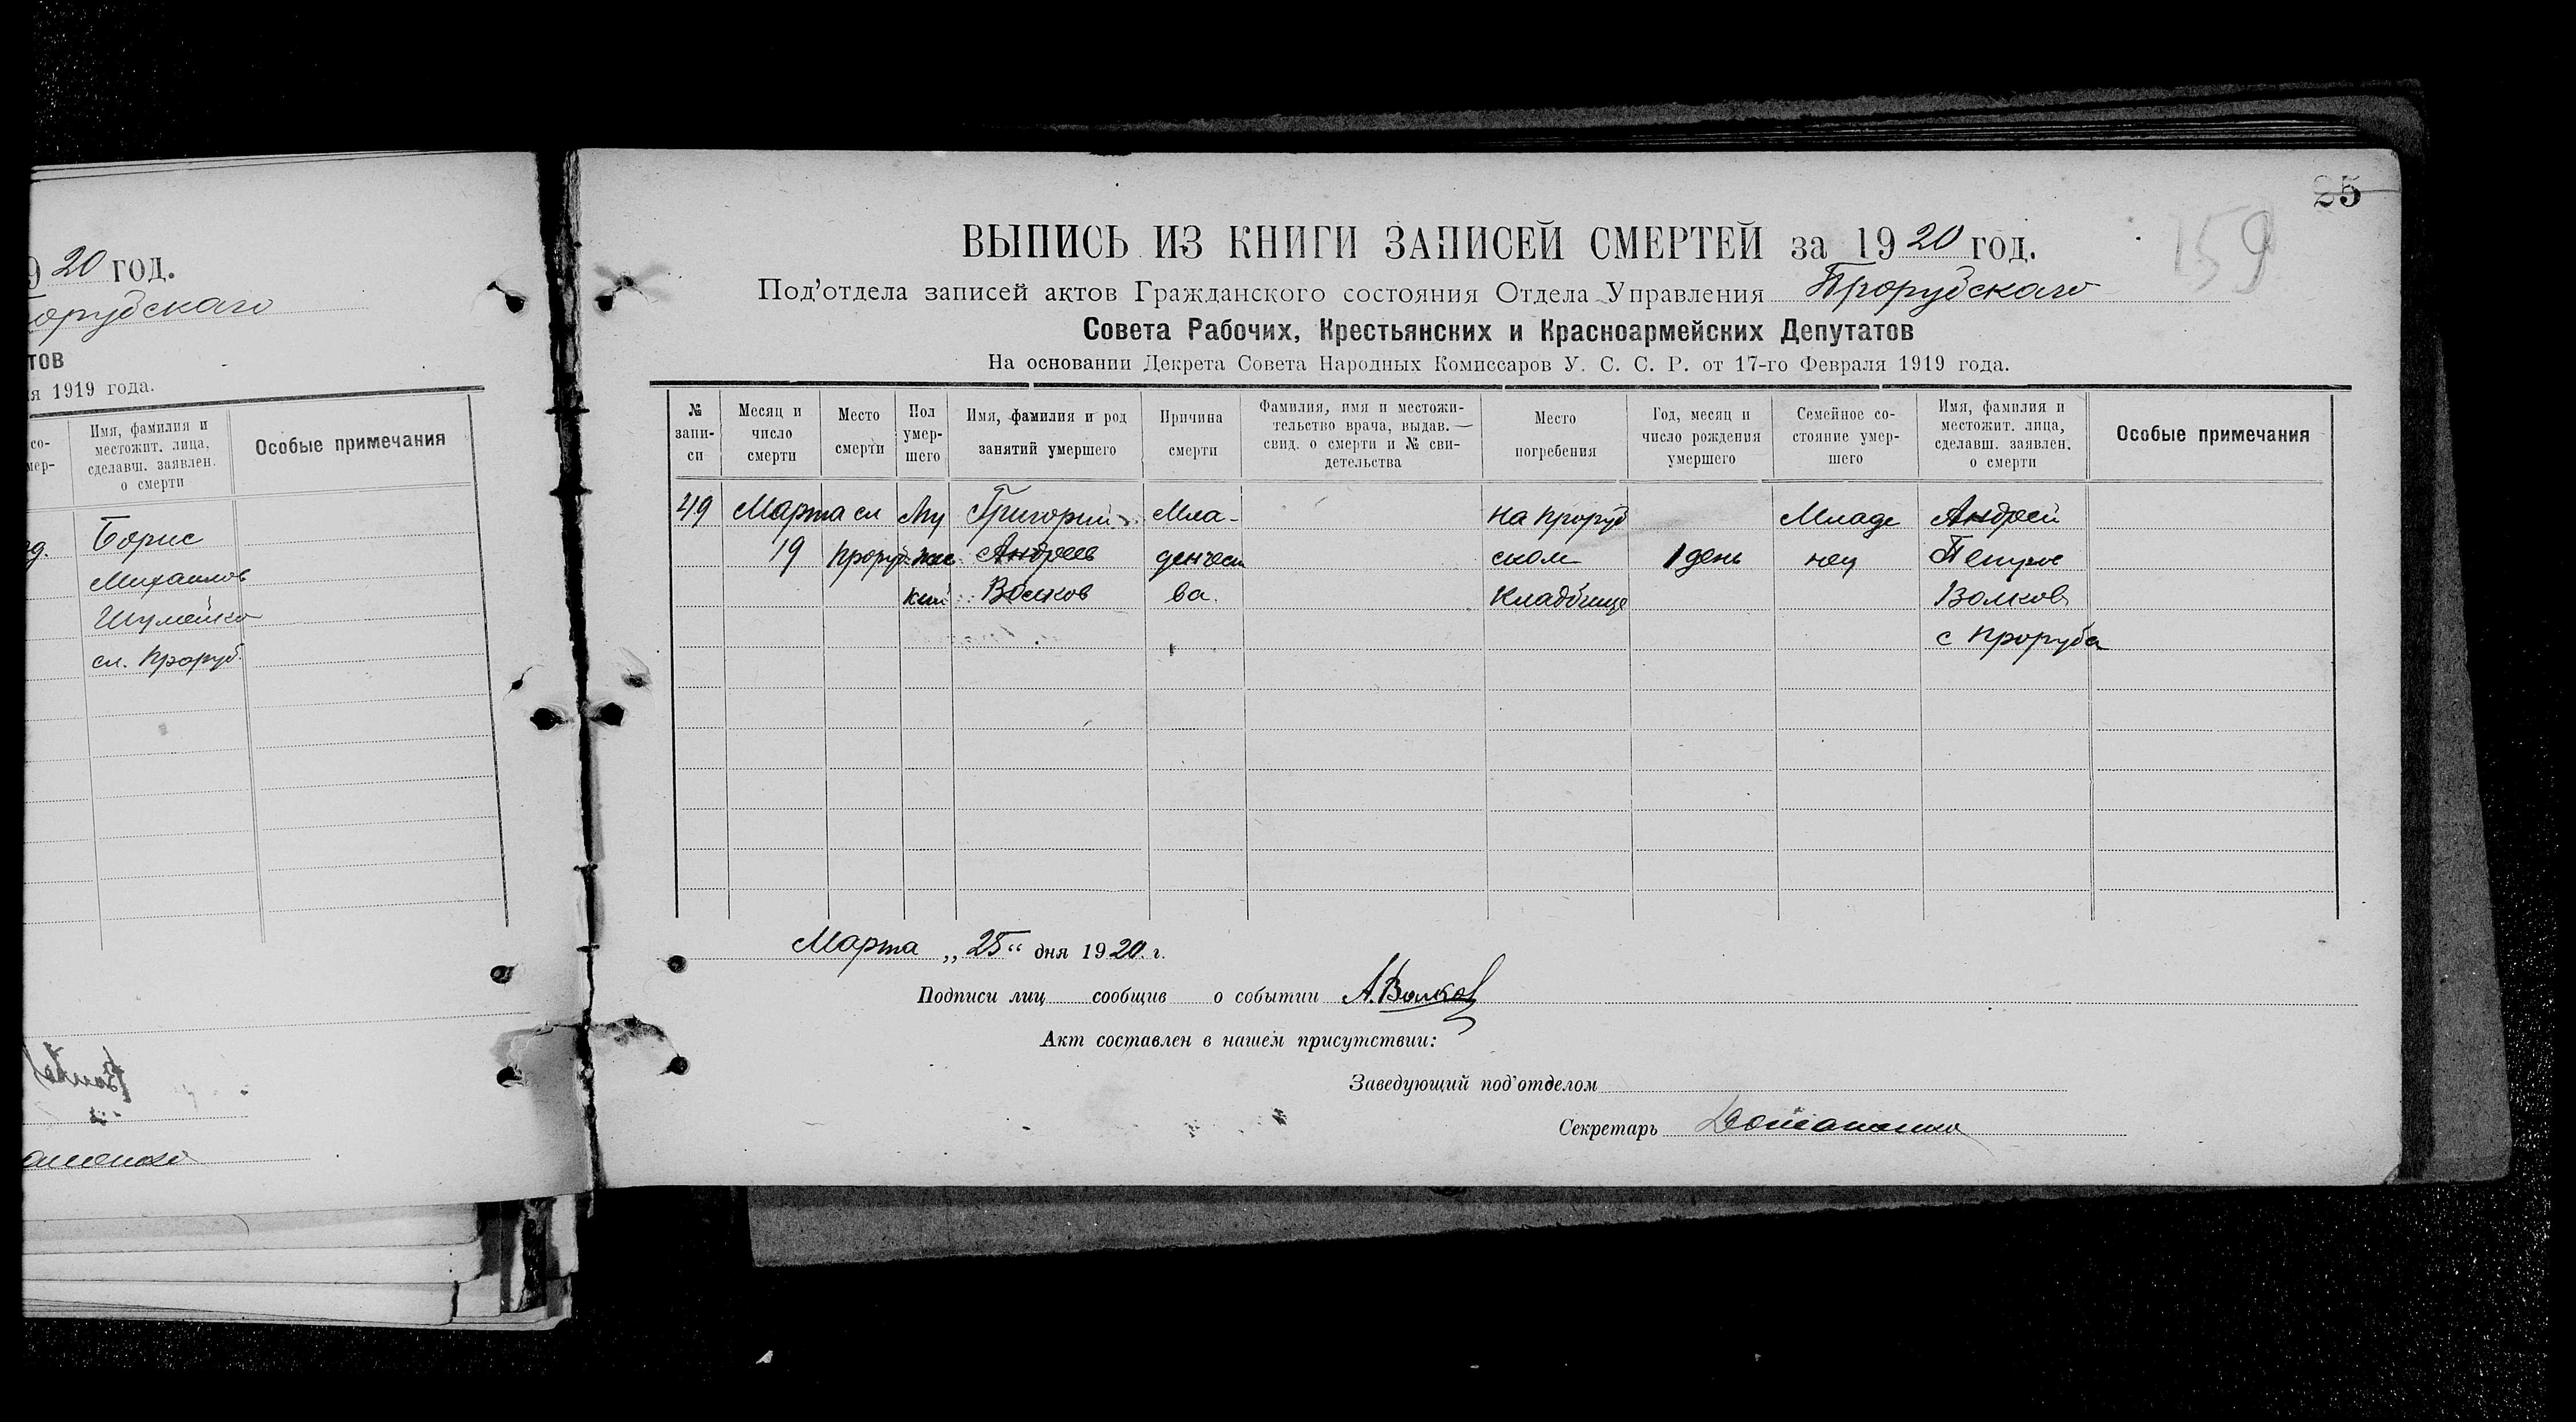 9 20 год.
орубскаго
тов
я 1919 года.
со-
мер-
Имя, фамилия и
местожит. лица,
сделавш. заявлен.
о смерти
Особые примечания
Борис
Михаилов
Шумейко
сл. Проруб.
25
159
ВЫПИСЬ ИЗ КНИГИ ЗАПИСЕЙ СМЕРТЕЙ за 1920 год.
Под'отдела записей актов Гражданского состояния Отдела Управления Прорубскаго
Совета Рабочих, Крестьянских и Красноармейских Депутатов
На основании Декрета Совета Народных Комиссаров У. С. С. Р. от 17-го Февраля 1919 года.
№ запи-си
Месяц и число смерти
Место смерти
Пол умер-шего
Имя, фамилия и род занятий умершего
Причина смерти
Фамилия, имя и местожи-тельство врача, выдав. свид. о смерти и № сви-детельства
Место погребения
Год, месяц и число рождения умершего
Семейное со-стояние умер-шего
Имя, фамилия и местожит. лица, сделавш. заявлен. о смерти
Особые примечания
49 Марта сл Му Григорий Мла- на Проруб Младе Андрей
19 Проруб жес Андреев денчест ском 1 день нец Петров
кий Волков ва. Кладбище Волков
с Проруба
Марта „25“ дня 1920. г.
Подписи лиц сообщив о событии А. Волков
Акт составлен в нашем присутствии:
Заведующий под'отделом
Секретарь